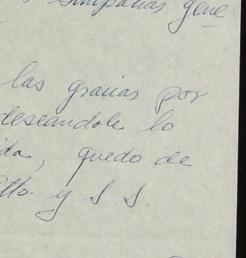 simpatías gene
las gracias por
deseandole lo
quedo de
tto. y S S.